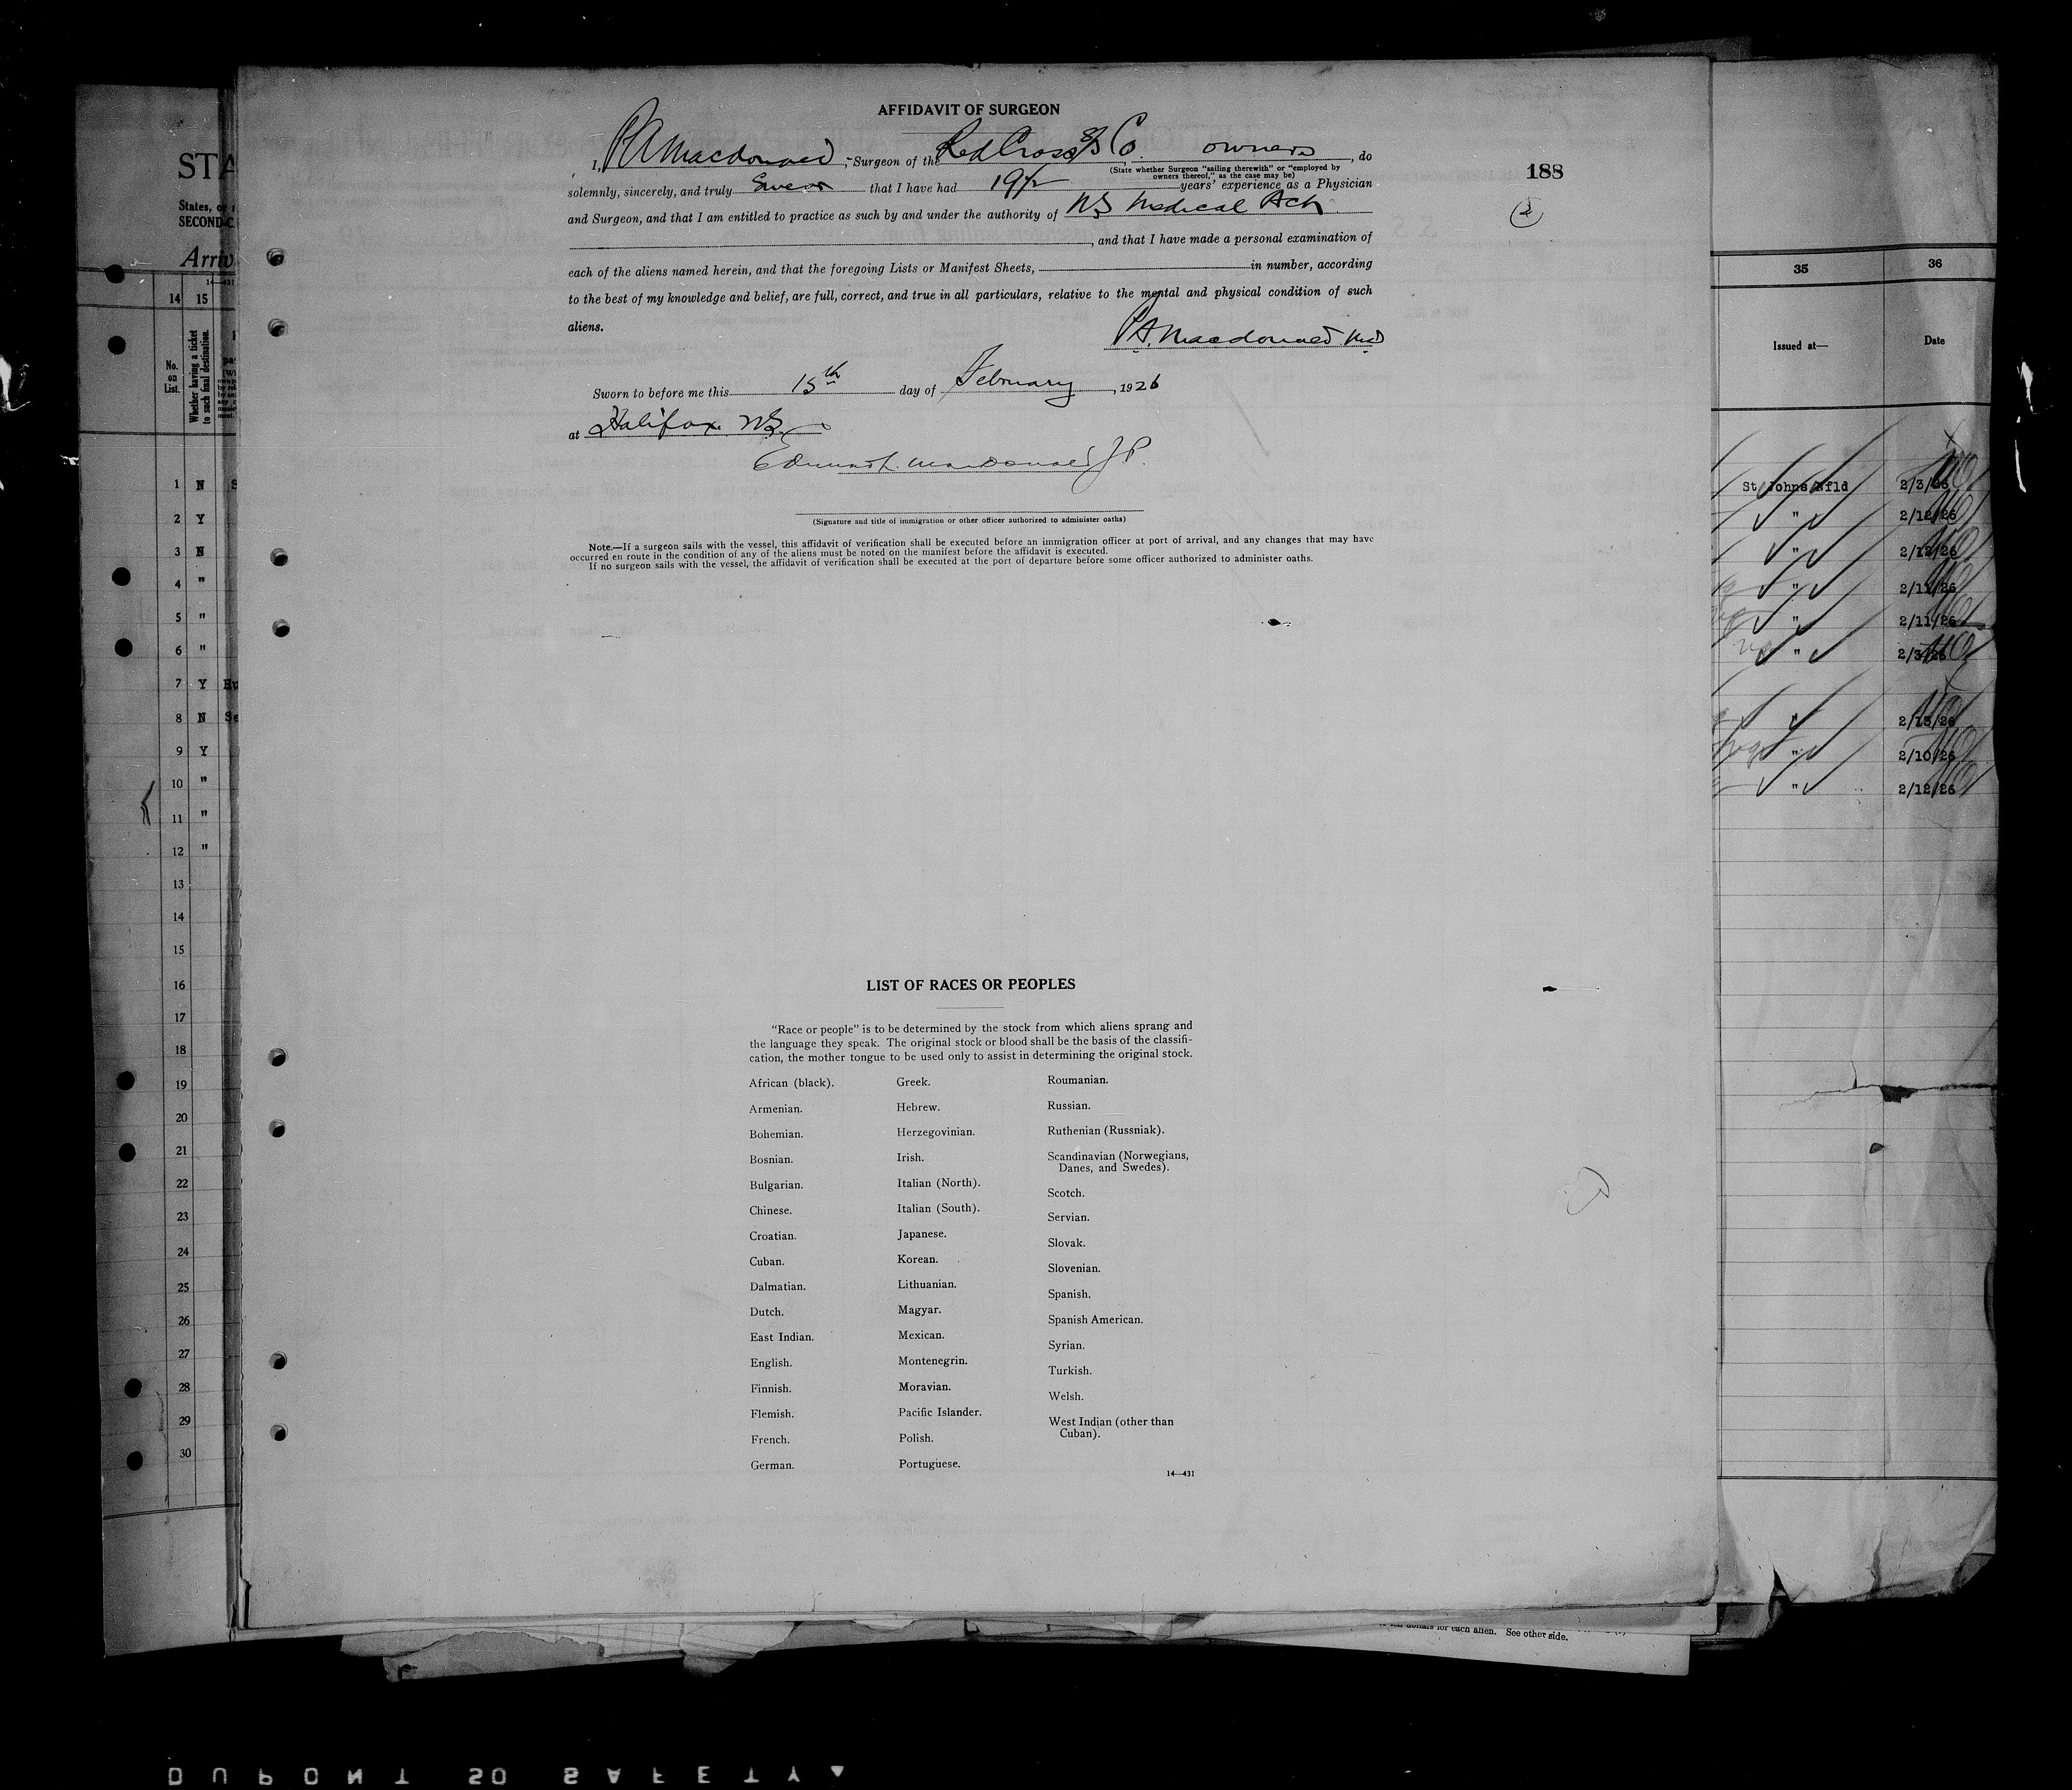 AFFIDAVIT OF SURGEON
I, P A Macdonald, Surgeon of the Red Cross S/S Co. owners, do
(State whether Surgeon "sailing therewith" or "employed by
owners thereof," as the case may be)
188
solemnly, sincerely, and truly Swear that I have had 19 1/2 years' experience as a Physician
and Surgeon, and that I am entitled to practice as such by and under the authority of NS Medical Act.
, and that I have made a personal examination of
each of the aliens named herein, and that the foregoing Lists or Manifest Sheets, in number, according
to the best of my knowledge and belief, are full, correct, and true in all particulars, relative to the mental and physical condition of such
aliens.
P A. Macdonald. MD
Sworn to before me this 15th day of February, 1926
at Halifax. NS.
Macdonald JP.
(Signature and title of immigration or other officer authorized to administer oaths)
Note.—If a surgeon sails with the vessel, this affidavit of verification shall be executed before an immigration officer at port of arrival, and any changes that may have
occurred en route in the condition of any of the aliens must be noted on the manifest before the affidavit is executed.
If no surgeon sails with the vessel, the affidavit of verification shall be executed at the port of departure before some officer authorized to administer oaths.
LIST OF RACES OR PEOPLES
"Race or people" is to be determined by the stock from which aliens sprang and
the language they speak. The original stock or blood shall be the basis of the classifi-
cation, the mother tongue to be used only to assist in determining the original stock.
African (black).
Armenian.
Bohemian.
Bosnian.
Bulgarian.
Chinese.
Croatian.
Cuban.
Dalmatian.
Dutch.
East Indian.
English.
Finnish.
Flemish.
French.
German.
Greek.
Hebrew.
Herzegovinian.
Irish.
Italian (North).
Italian (South).
Japanese.
Korean.
Lithuanian.
Magyar.
Mexican.
Montenegrin.
Moravian.
Pacific Islander.
Polish.
Portuguese.
Roumanian.
Russian.
Ruthenian (Russniak).
Scandinavian (Norwegians,
Danes, and Swedes).
Scotch.
Servian.
Slovak.
Slovenian.
Spanish.
Spanish American.
Syrian.
Turkish.
Welsh.
West Indian (other than
Cuban).
14—431
STA
States, or
SECOND-C
Arriv
14—431
14 15
No.
on
List.
Whether having a ticket
to such final destination.
1 N S
2 Y
3 N
4 "
5 "
6 "
7 Y Hu
8 N Se
9 Y
10 "
11 "
12 "
13
14
15
16
17
18
19
20
21
22
23
24
25
26
27
28
29
30
35 36
Issued at— Date
St Johns Nfld 2/3/26
" 2/12/26
" 2/12/26
" 2/11/26
" 2/11/26
" 2/3/26
" 2/13/26
" 2/10/26
" 2/12/26
for each alien. See other side.
DUPONT 50 SAFETY